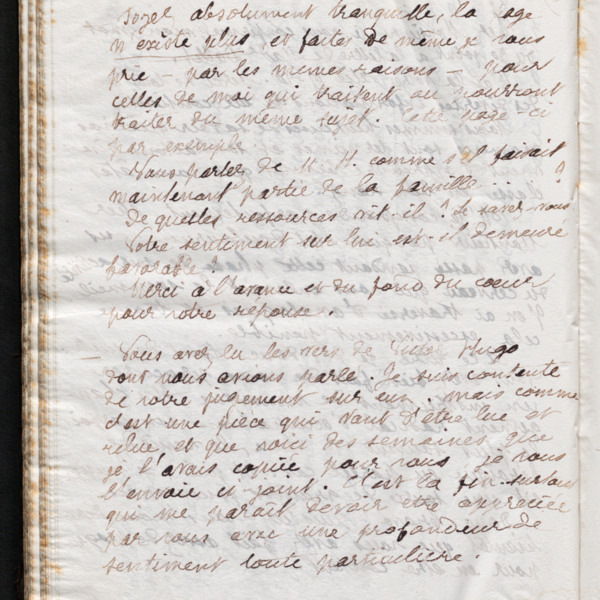 soyez absolument tranquille, la page
n'existe plus et faites de même je vous
prie – par les mêmes raisons – pour
celles de moi qui traitent ou pourront
traiter du même sujet. Cette page-ci
par exemple.
Vous parlez de M. H. comme s'il faisait
maintenant partie de la famille ... ?
De quelles ressources vit-il ? Le savez-vous
Votre sentiment sur lui est-il demeuré
favorable ?
Merci à l'avance et du fond du cœur
pour votre réponse.
– Vous avez lu les vers de Victor Hugo
dont nous avions parlé. Je suis contente
de votre jugement sur eux. mais comme
c'est une pièce qui vaut d'être lue et
relue et que voici des semaines que
je l'avais copiée pour vous je vous
l'envoie ci joint. C'est la fin surtout
qui me parait devoir être appréciée
par vous avec une profondeur de
sentiment toute particulière.